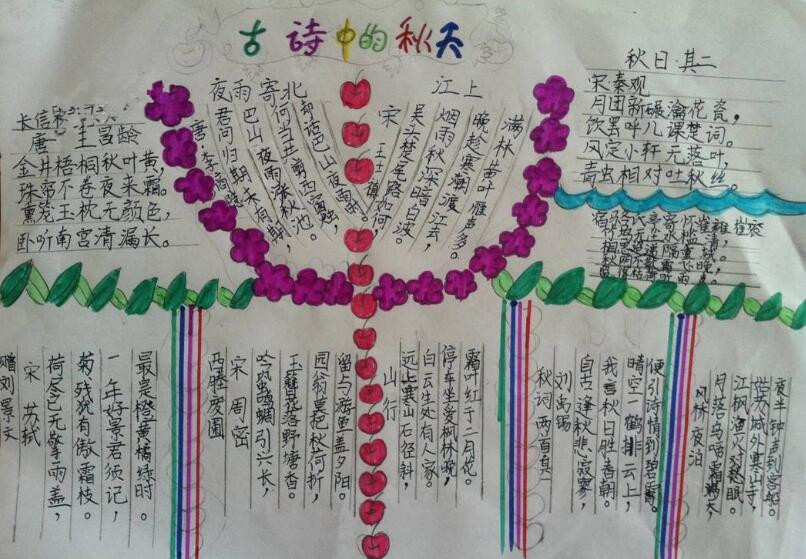 古诗中的秋天
长信秋
唐 王昌龄
金井梧桐秋叶黄，
珠帘不卷夜来霜。
熏笼玉枕无颜色，
卧听南宫清漏长。
夜雨寄北
唐·李商隐
君问归期未有期，
巴山夜雨涨秋池。
何当共剪西窗烛，
却话巴山夜雨时。
江上
宋 王士禛
吴头楚尾路如何，
烟雨秋深暗白波。
晚趁寒潮渡江去，
满林黄叶雁声多。
秋日 其二
宋秦观
月团新碾瀹花瓷，
饮罢呼儿课楚词。
风定小轩无落叶，
青虫相对吐秋丝。
赠刘景文
宋 苏轼
荷尽已无擎雨盖，
菊残犹有傲霜枝。
一年好景君须记，
最是橙黄橘绿时。
西塍废圃
宋 周密
吟蛩鸣蜩引兴长，
玉簪花落野塘香。
园翁莫把秋荷折，
留与游鱼盖夕阳。
山行
远上寒山石径斜，
白云生处有人家。
停车坐爱枫林晚，
霜叶红于二月花。
秋词 两首其一
刘禹锡
自古逢秋悲寂寥，
我言秋日胜春朝。
晴空一鹤排云上，
便引诗情到碧霄。
风林夜泊
月落乌啼霜满天，
江枫渔火对愁眠。
姑苏城外寒山寺，
夜半钟声到客船。